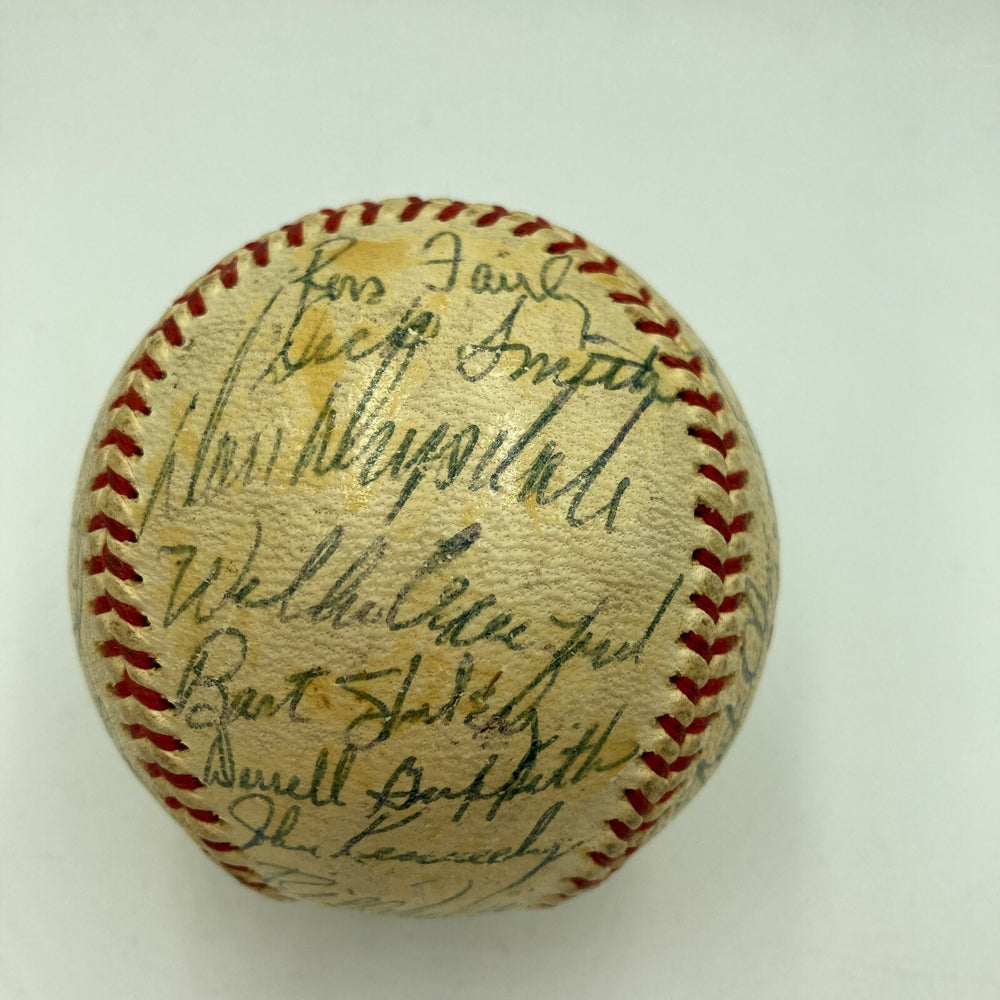 Ron Fairly
Jack Smith
Don Drysdale
Willie Crawford
Bart Shirley
Derrell Griffith
John Kennedy